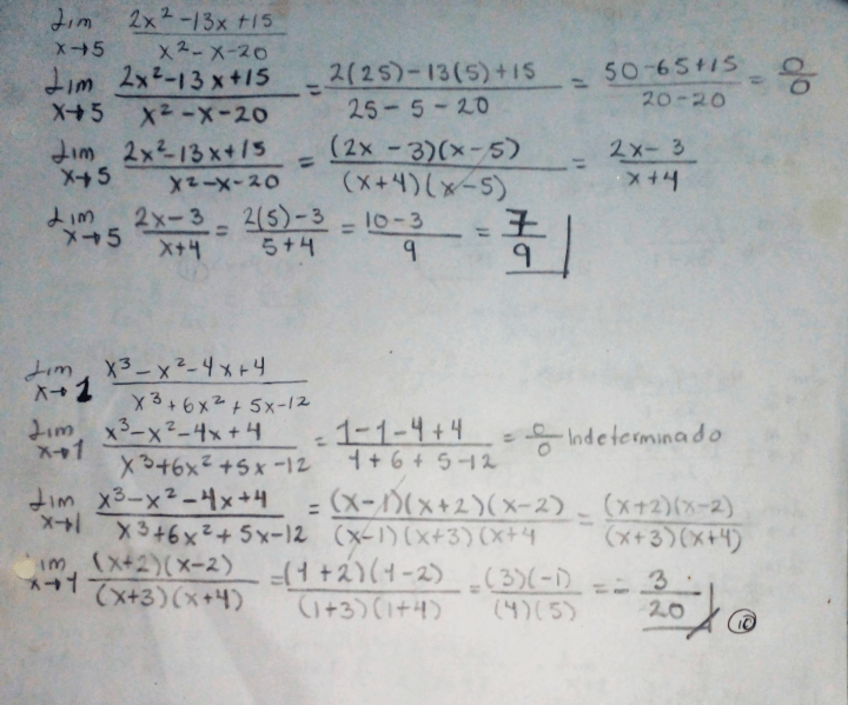 Lim x→5 (2x² - 13x + 15)/(x² - x - 20)
Lim x→5 (2x² - 13x + 15)/(x² - x - 20) = (2(25) - 13(5) + 15)/(25 - 5 - 20) = (50 - 65 + 15)/(20 - 20) = 0/0
Lim x→5 (2x² - 13x + 15)/(x² - x - 20) = ((2x - 3)(x - 5))/((x + 4)(x - 5)) = (2x - 3)/(x + 4)
Lim x→5 (2x - 3)/(x + 4) = (2(5) - 3)/(5 + 4) = (10 - 3)/9 = 7/9
Lim x→1 (x³ - x² - 4x + 4)/(x³ + 6x² + 5x - 12)
Lim x→1 (x³ - x² - 4x + 4)/(x³ + 6x² + 5x - 12) = (1 - 1 - 4 + 4)/(1 + 6 + 5 - 12) = 0/0 Indeterminado
Lim x→1 (x³ - x² - 4x + 4)/(x³ + 6x² + 5x - 12) = ((x - 1)(x + 2)(x - 2))/((x - 1)(x + 3)(x + 4) = ((x + 2)(x - 2))/((x + 3)(x + 4))
Lim x→1 ((x + 2)(x - 2))/((x + 3)(x + 4)) = ((1 + 2)(1 - 2))/((1 + 3)(1 + 4)) = ((3)(-1))/((4)(5)) = - 3/20 ⑩